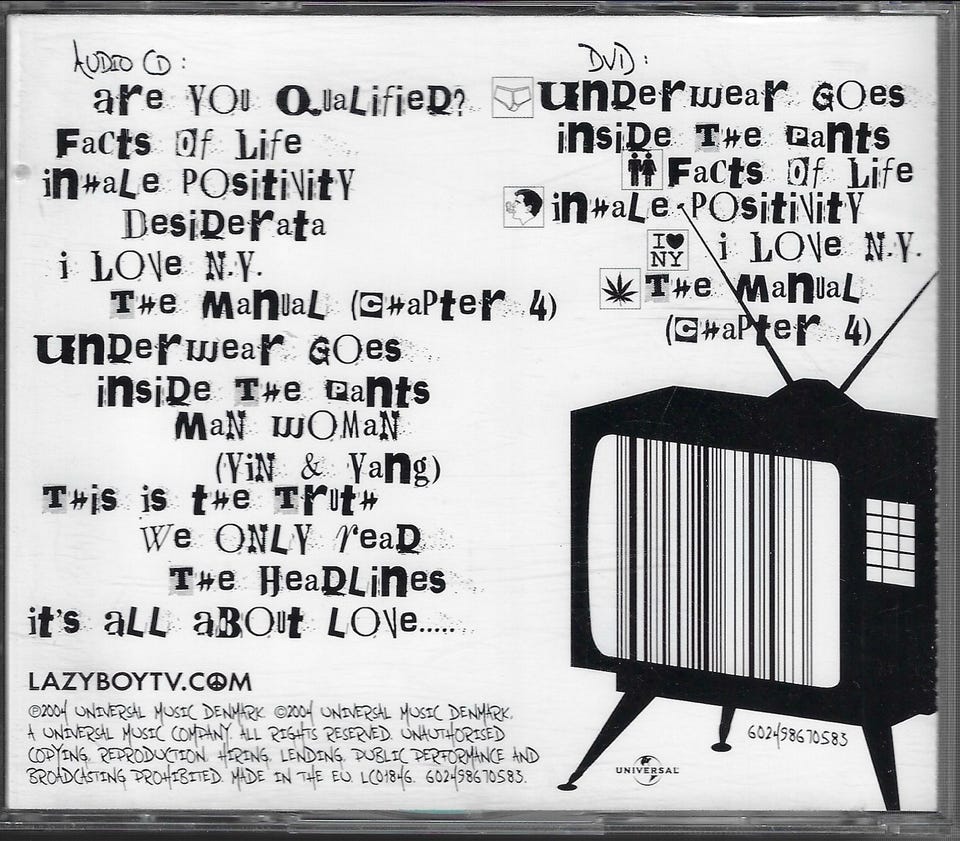 AUDIO CD:
are YOU QuaLifieD?
Facts Of Life
inHaLe POsitiNitY
DesiDerata
i LOVe N.Y.
THe ManuaL (CHaPter 4)
unDerwear GOes
insiDe THe Pants
MaN WOMaN
(YiN & Yang)
THis is tHe TrutH
We ONLY reaD
THe HeaDLines
it's aLL aBOut LOVe.....
LAZYBOYTV.COM
℗2004 UNIVERSAL MUSIC DENMARK. ©2004 UNIVERSAL MUSIC DENMARK,
A UNIVERSAL MUSIC COMPANY. ALL RIGHTS RESERVED. UNAUTHORISED
COPYING, REPRODUCTION, HIRING, LENDING, PUBLIC PERFORMANCE AND
BROADCASTING PROHIBITED. MADE IN THE EU. LC01846. 602498670583.
DVD:
unDerwear GOes
insiDe THe Pants
Facts Of Life
inHaLe POsitiNitY
I♥
NY
i LOVe N.Y.
THe ManuaL
(CHaPter 4)
602498670583
UNIVERSAL